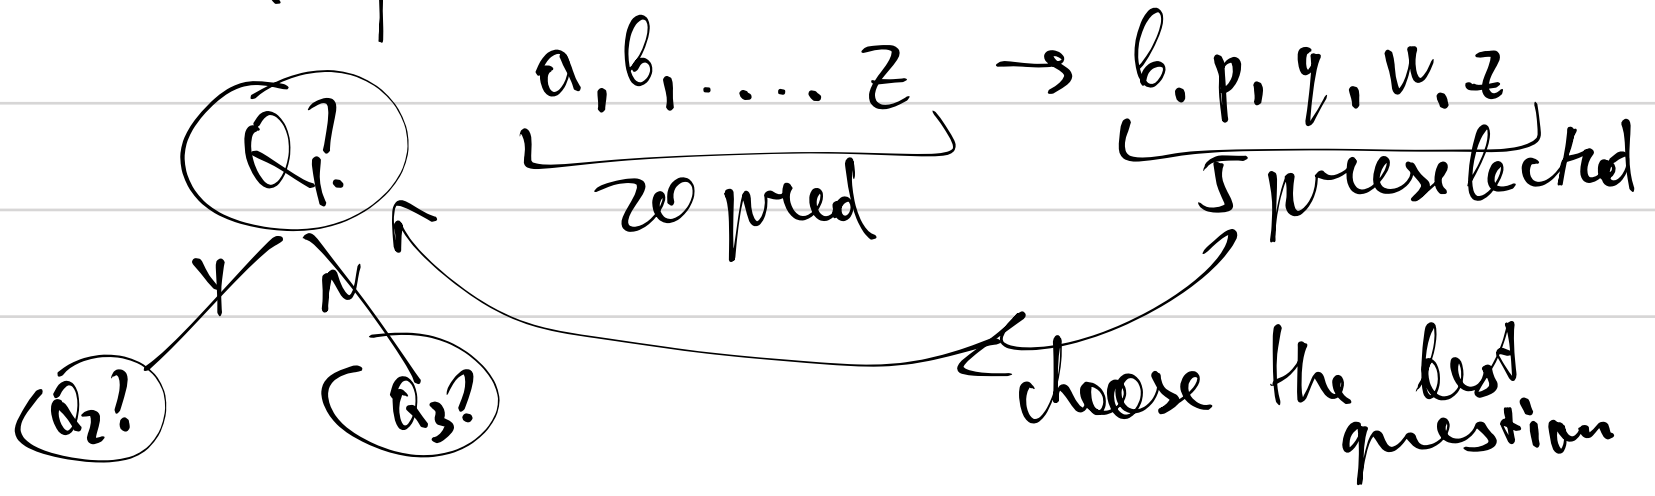 a, b, . . . . z → b, p, q, u, z
Q₁?
20 pred
5 preselected
Y N
Q₂? Q₃?
choose the best
question